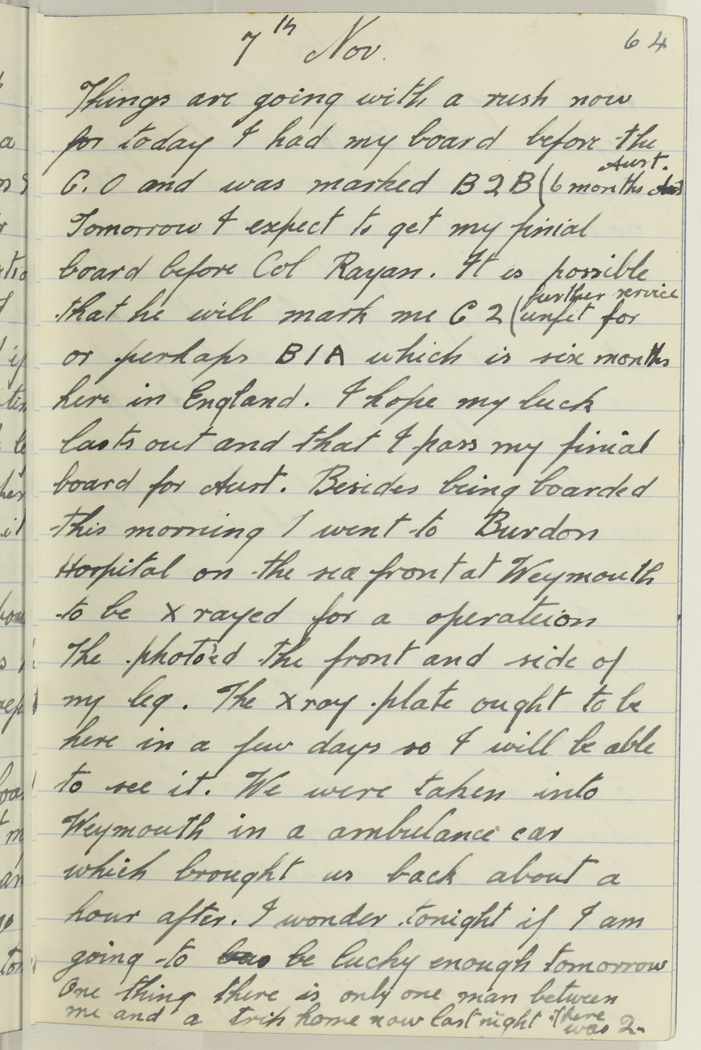 7th Nov. 64
Things are going with a rush now
for today I had my board before the
C.O and was marked B2B (6 months Aust.
Tomorrow I expect to get my finial
board before Col Rayan. It is possible
that he will mark me C2 (unfit for further service
or perhaps B1A which is six months
here in England. I hope my luck
lasts out and that I pass my finial
board for Aust. Besides being boarded
this morning I went to Burdon
Hospital on the sea front at Weymouth
to be X rayed for a operateion
The photo'ed the front and side of
my leg. The X ray plate ought to be
here in a few days so I will be able
to see it. We were taken into
Weymouth in a ambulance car
which brought us back about a
hour after. I wonder tonight if I am
going to be lucky enough tomorrow
One thing there is only one man between
me and a trip home now last night there was 2-